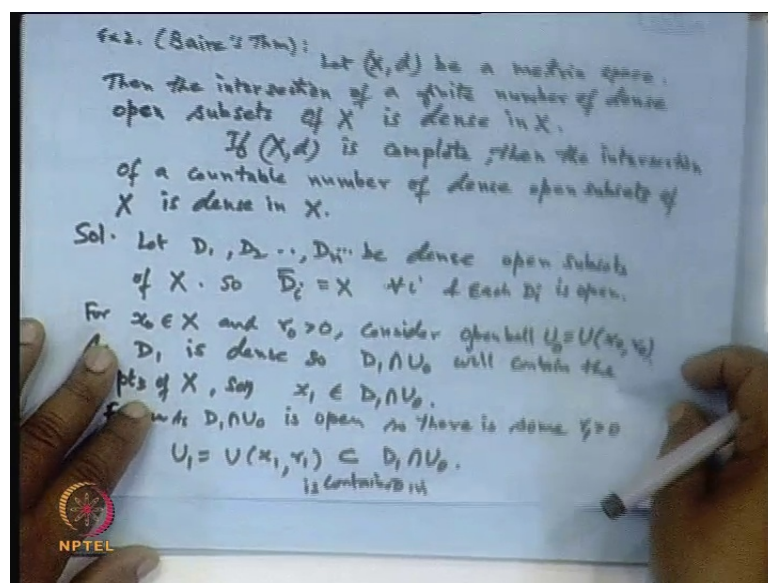 Ex2. (Baire's Thm):
Let (X,d) be a metric space.
Then the intersection of a finite number of dense
open subsets of X is dense in X.
If (X,d) is complete, then the intersection
of a countable number of dense open subsets of
X is dense in X.
Sol. Let D₁, D₂ .., Dₙ... be dense open subsets
of X. So D̄ᵢ = X ∀i & Each Dᵢ is open.
For x₀ ∈ X and r₀ > 0, consider open ball U₀ = U(x₀, r₀)
D₁ is dense so D₁ ∩ U₀ will contain the
pts of X, say x₁ ∈ D₁ ∩ U₀.
As D₁ ∩ U₀ is open so there is some r₁ > 0
U₁ = U(x₁, r₁) ⊂ D₁ ∩ U₀.
is contained in
NPTEL